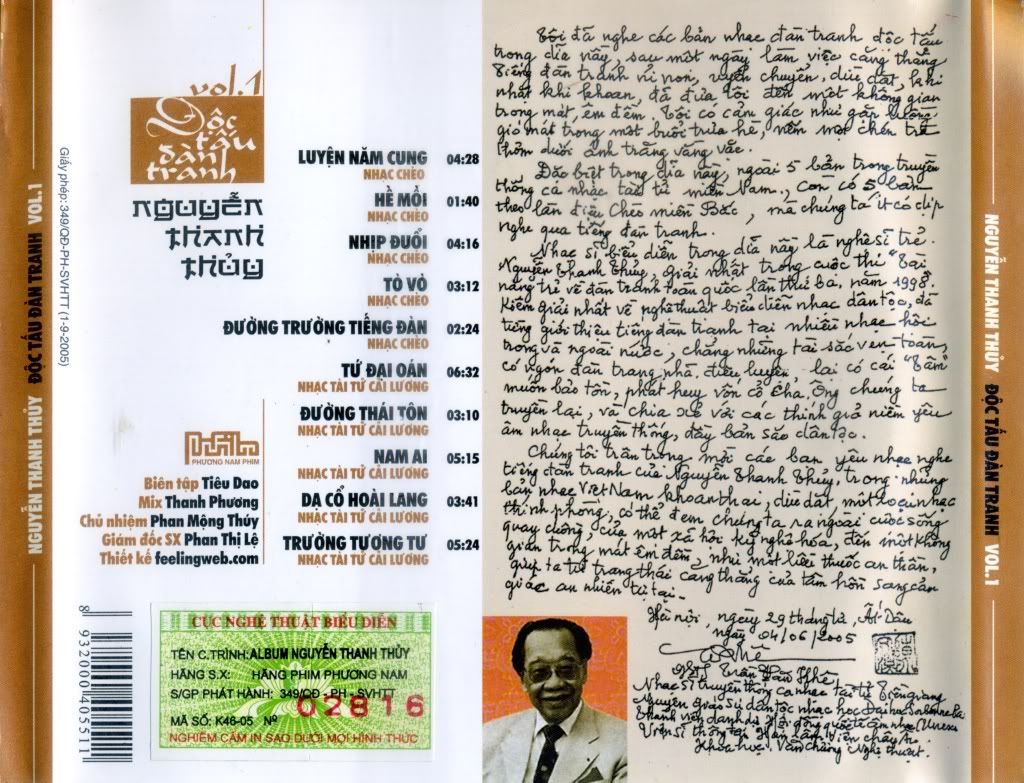 NGUYỄN THANH THỦY ĐỘC TẤU ĐÀN TRANH VOL.1
Giấy phép: 349/QĐ-PH-SVHTT (1-9-2005)
vol.1
Độc
tấu
đàn
tranh
NGUYỄN
THANH
THỦY
LUYỆN NĂM CUNG 04:28
NHẠC CHÈO
HỀ MỒI 01:40
NHẠC CHÈO
NHỊP ĐUỔI 04:16
NHẠC CHÈO
TÒ VÒ 03:12
NHẠC CHÈO
ĐƯỜNG TRƯỜNG TIẾNG ĐÀN 02:24
NHẠC CHÈO
TỨ ĐẠI OÁN 06:32
NHẠC TÀI TỬ CẢI LƯƠNG
ĐƯỜNG THÁI TÔN 03:10
NHẠC TÀI TỬ CẢI LƯƠNG
NAM AI 05:15
NHẠC TÀI TỬ CẢI LƯƠNG
DẠ CỔ HOÀI LANG 03:41
NHẠC TÀI TỬ CẢI LƯƠNG
TRƯỜNG TƯƠNG TƯ 05:24
NHẠC TÀI TỬ CẢI LƯƠNG
PNFilm
PHƯƠNG NAM PHIM
Biên tập Tiêu Dao
Mix Thanh Phương
Chủ nhiệm Phan Mộng Thúy
Giám đốc SX Phan Thị Lệ
Thiết kế feelingweb.com
8 932000 405511
CỤC NGHỆ THUẬT BIỂU DIỄN
TÊN C.TRÌNH: ALBUM NGUYỄN THANH THỦY
HÃNG S.X: HÃNG PHIM PHƯƠNG NAM
S/GP PHÁT HÀNH: 349/QĐ - PH - SVHTT
MÃ SỐ: K46-05 Nº 02816
NGHIÊM CẤM IN SAO DƯỚI MỌI HÌNH THỨC
Tôi đã nghe các bản nhạc đàn tranh độc tấu
trong dĩa nầy, sau một ngày làm việc căng thẳng
Tiếng đàn tranh nỉ non, uyển chuyển, dìu dặt, khi
nhặt khi khoan, đã đưa tôi đến một không gian
trong mát, êm đềm. Tôi có cảm giác như gặp luồng
gió mát trong một buổi trưa hè, nếm một chén trà
thơm dưới ánh trăng vằng vặc.
Đặc biệt trong dĩa nầy, ngoài 5 bản trong truyền
thống ca nhạc tài tử miền Nam., còn có 5 bản
theo làn điệu Chèo miền Bắc, mà chúng ta ít có dịp
nghe qua tiếng đàn tranh.
Nhạc sĩ biểu diễn trong dĩa nầy là nghệ sĩ trẻ.
Nguyễn Thanh Thủy, giải nhất trong cuộc thi "Tài
năng trẻ về đàn tranh toàn quốc lần thứ ba, năm 1998.
Kiêm giải nhất về nghệ thuật biểu diễn nhạc dân tộc, đã
từng giới thiệu tiếng đàn tranh tại nhiều nhạc hội
trong và ngoài nước, chẳng những tài sắc vẹn toàn,
có ngón đàn trang nhã, điêu luyện, lại có cái "Tâm"
muốn bảo tồn, phát huy vốn cổ Cha, Ông chúng ta
truyền lại, và chia xẻ với các thính giả niềm yêu
âm nhạc truyền thống, đầy bản sắc dân tộc.
Chúng tôi trân trọng mời các bạn yêu nhạc nghe
tiếng đàn tranh của Nguyễn Thanh Thủy, trong những
bản nhạc Việt Nam khoan thai, dìu dặt, một loại nhạc
thính phòng, có thể đem chúng ta ra ngoài cuộc sống
quay cuồng, của một xã hội kỹ nghệ hóa, đến một không
gian trong mát êm đềm, như một liều thuốc an thần,
giúp ta từ trạng thái căng thẳng của tâm hồn sang cảm
giác an nhiên tự tại.
Hà nội, ngày 29 tháng tư, Ất Dậu
ngày 04/06/2005
Trần Văn Khê
Nhạc sĩ truyền thống ca nhạc tài tử Tiền giang
Nguyên giáo sư dân tộc nhạc học Đại học Sorbonne
Thành viên danh dự Hội đồng quốc tế âm nhạc Unesco
Viện sĩ thông tấn Hàn lâm Viện châu Âu
Khoa học, Văn chương Nghệ thuật.
NGUYỄN THANH THỦY ĐỘC TẤU ĐÀN TRANH VOL.1